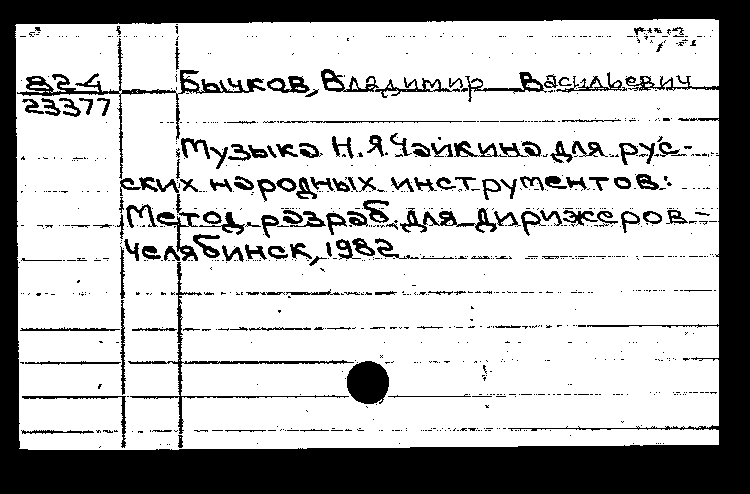 муз.
82-4
23377
Бычков, Владимир Васильевич
Музыка Н.Я.Чайкина для рус-
ских народных инструментов:
Метод. разраб. для дирижеров -
Челябинск, 1982.